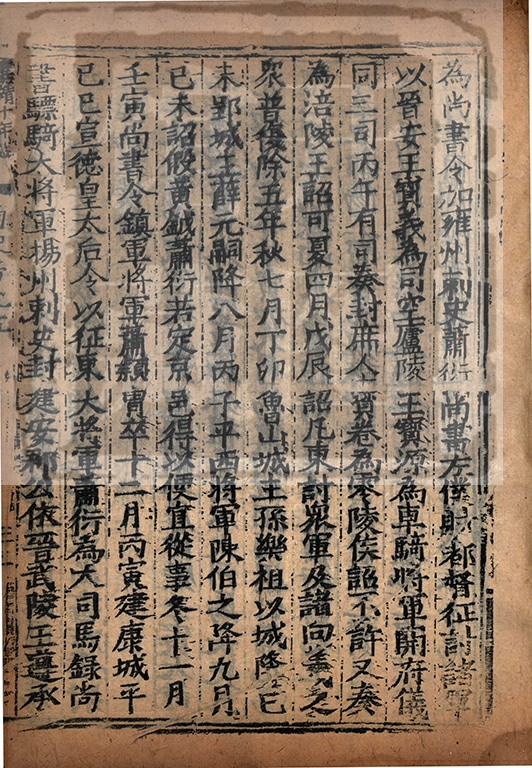 為尚書令加雍州刺史蕭衍尚書左僕射都督征討諸軍
以晉安王寳義為司空廬陵王寳源為車騎將軍開府儀
同三司丙午有司奏封庶人寳卷為零陵侯詔不許又奏
為涪陵王詔可夏四月戊辰詔凡東討眾軍及諸向義之
眾普復除五年秋七月丁卯魯山城主孫樂祖以城降己
未郢城主薛元嗣降八月丙子平西將軍陳伯之降九月
已未詔假黃鉞蕭衍若定京邑得以便宜從事冬十一月
壬寅尚書令鎮軍將軍蕭頴胄卒十二月丙寅建康城平
已巳宣德皇太后令以征東大將軍蕭衍為大司馬錄尚
書驃騎大將軍揚州刺史封建安郡公依晉武陵王遵承